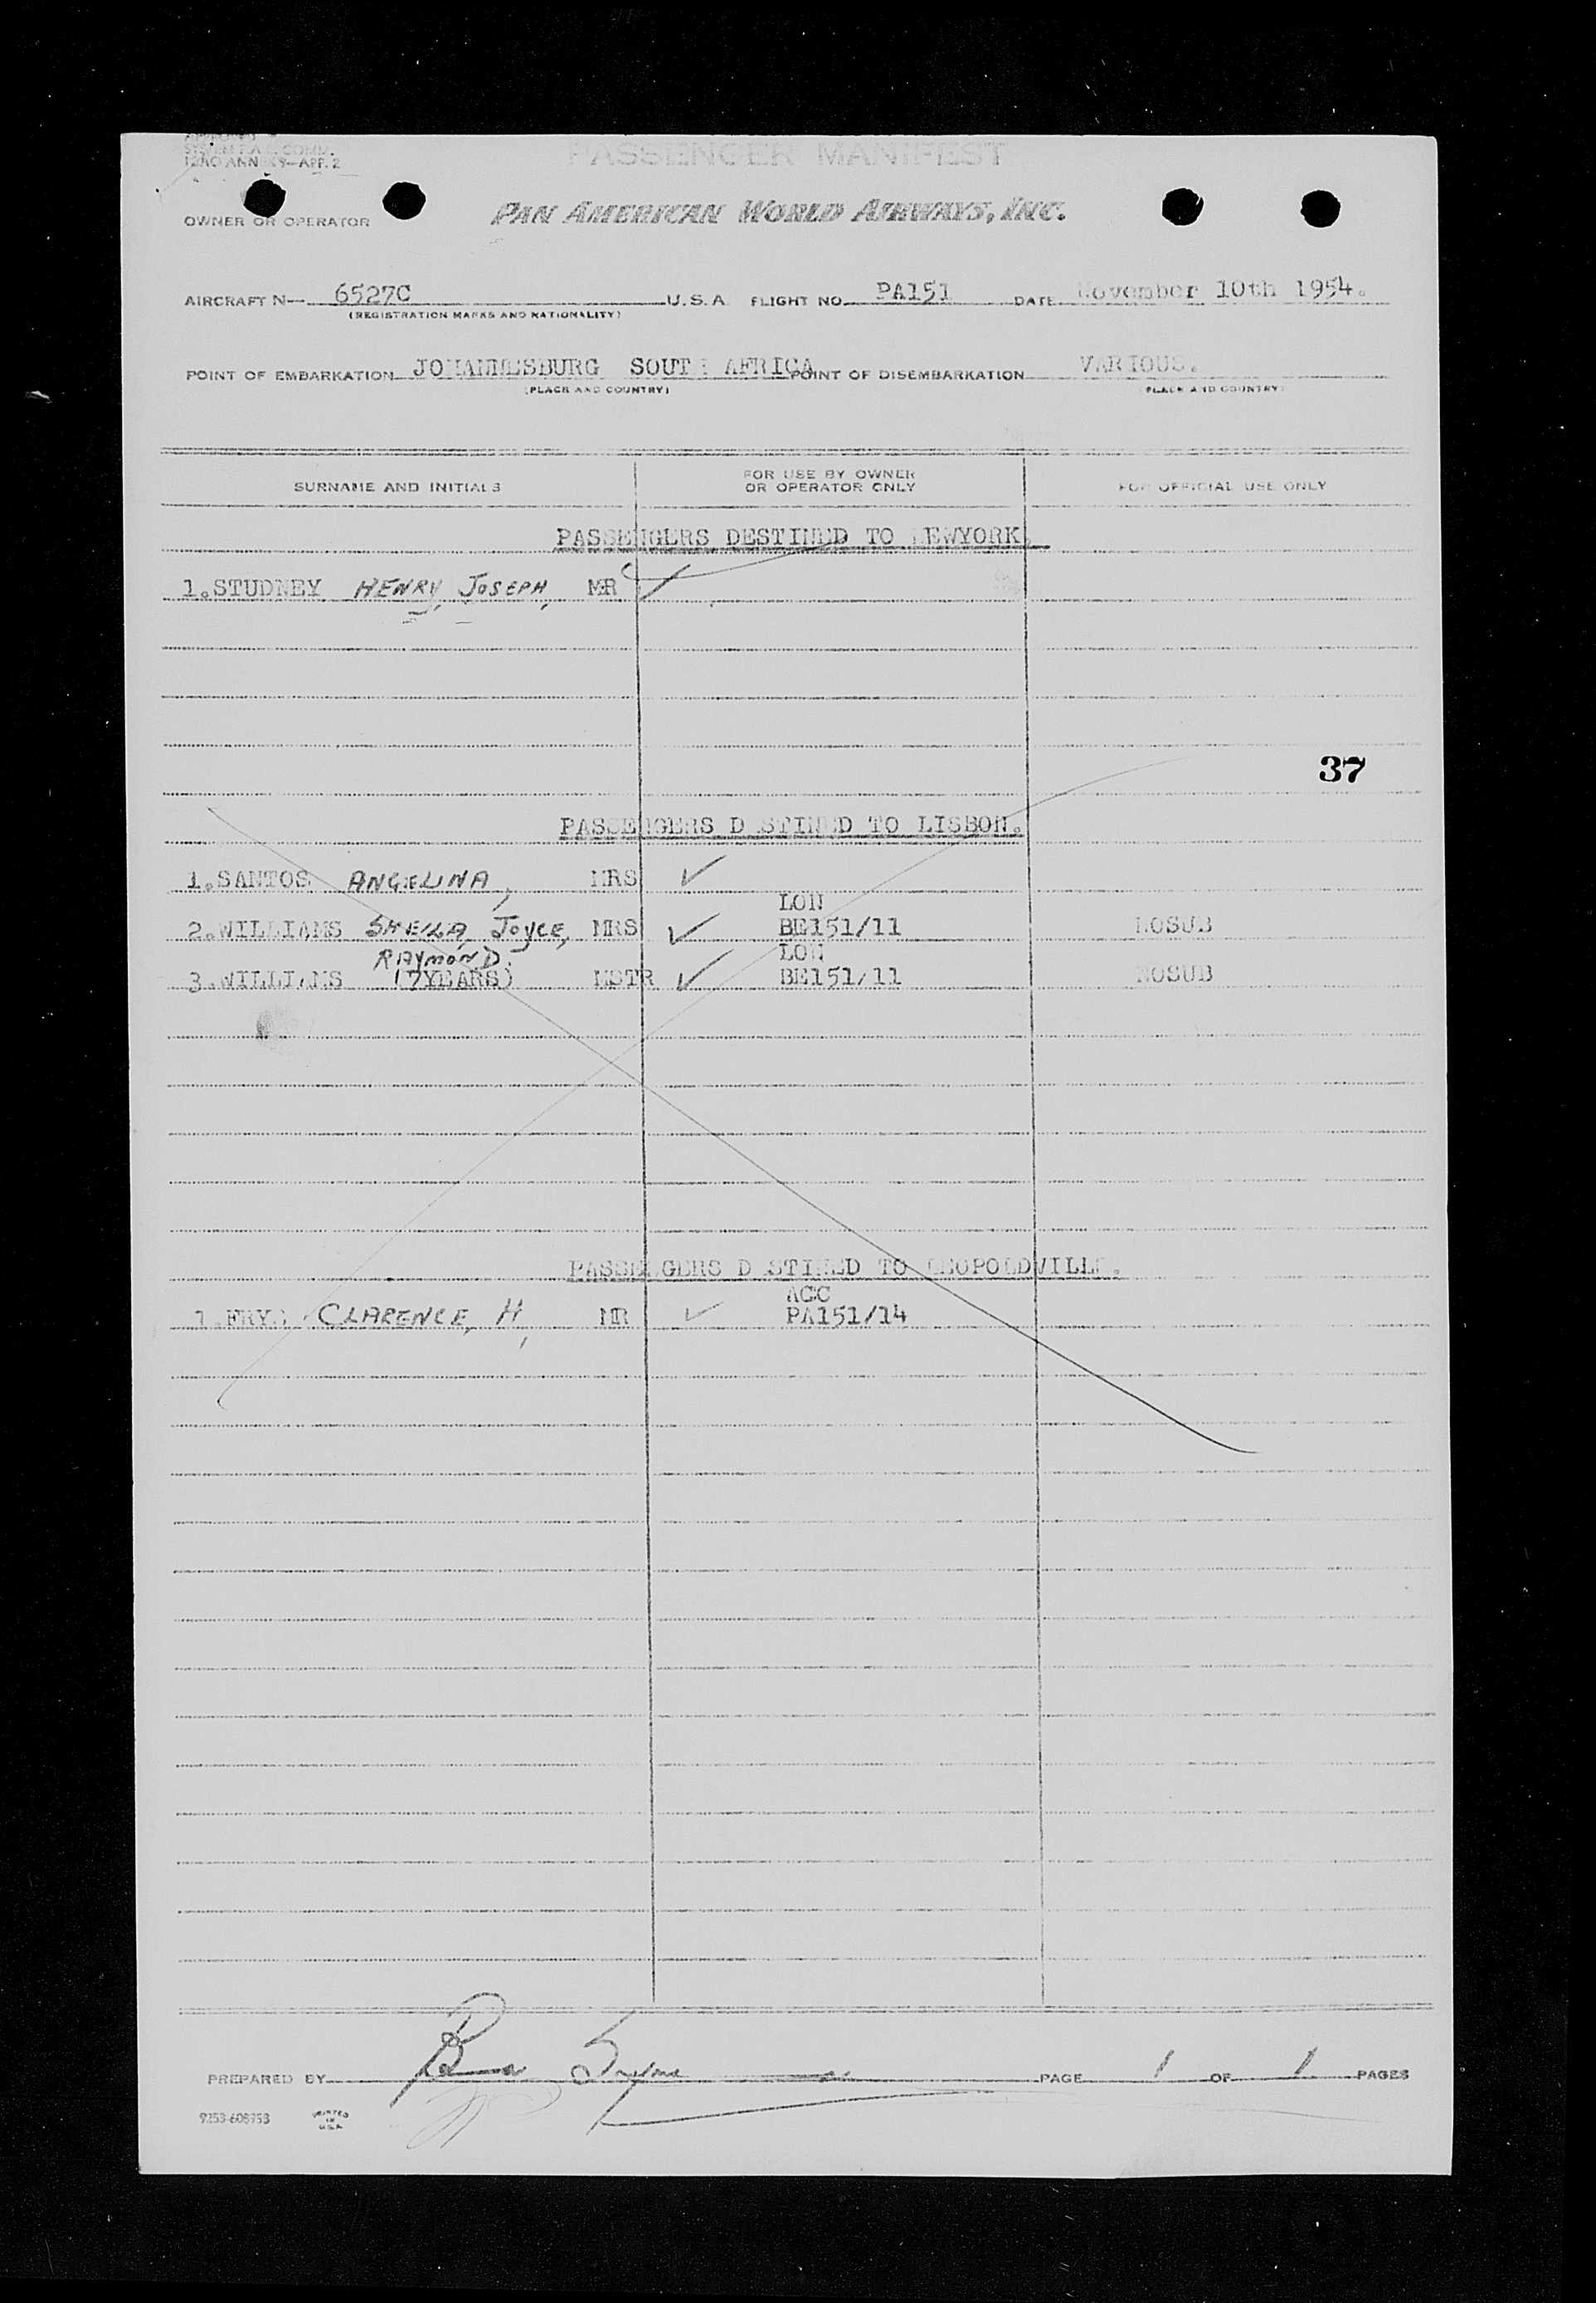 PASSENGER MANIFEST
ANNEX 9—APP. 2
OWNER OR OPERATOR PAN AMERICAN WORLD AIRWAYS, INC.
AIRCRAFT N— 6527C U.S.A. FLIGHT NO. PA151 DATE November 10th 1954.
(REGISTRATION MARKS AND NATIONALITY)
POINT OF EMBARKATION JOHANNESBURG SOUTH AFRICA POINT OF DISEMBARKATION VARIOUS.
(PLACE AND COUNTRY) (PLACE AND COUNTRY)
SURNAME AND INITIALS FOR USE BY OWNER OR OPERATOR ONLY FOR OFFICIAL USE ONLY
PASSENGERS DESTINED TO NEWYORK.
1.STUDNEY HENRY, JOSEPH, MR ✓
37
PASSENGERS DESTINED TO LISBON.
1.SANTOS ANGELINA, MRS ✓
LON
2.WILLIAMS SHEILA, Joyce, MRS ✓ BE151/11 NOSUB
RAYMOND. LON
3.WILLIAMS (7YEARS) MSTR ✓ BE151/11 NOSUB
PASSENGERS DESTINED TO LEOPOLDVILLE.
ACC
1.FRYE CLARENCE, H, MR ✓ PA151/14
PREPARED BY PAGE 1 OF 1 PAGES
PRINTED
IN
U.S.A.